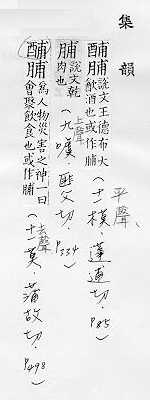 集韻
平聲、
酺脯 說文王德布大
飲酒也或作脯
（十一模．蓬逋切．P85）
上聲
脯 說文乾
肉也
（九噳．匪父切．P334）
酺脯 爲人物災害之神一曰
會聚飲食也或作脯
去聲
（十一莫．蒲故切．P498）